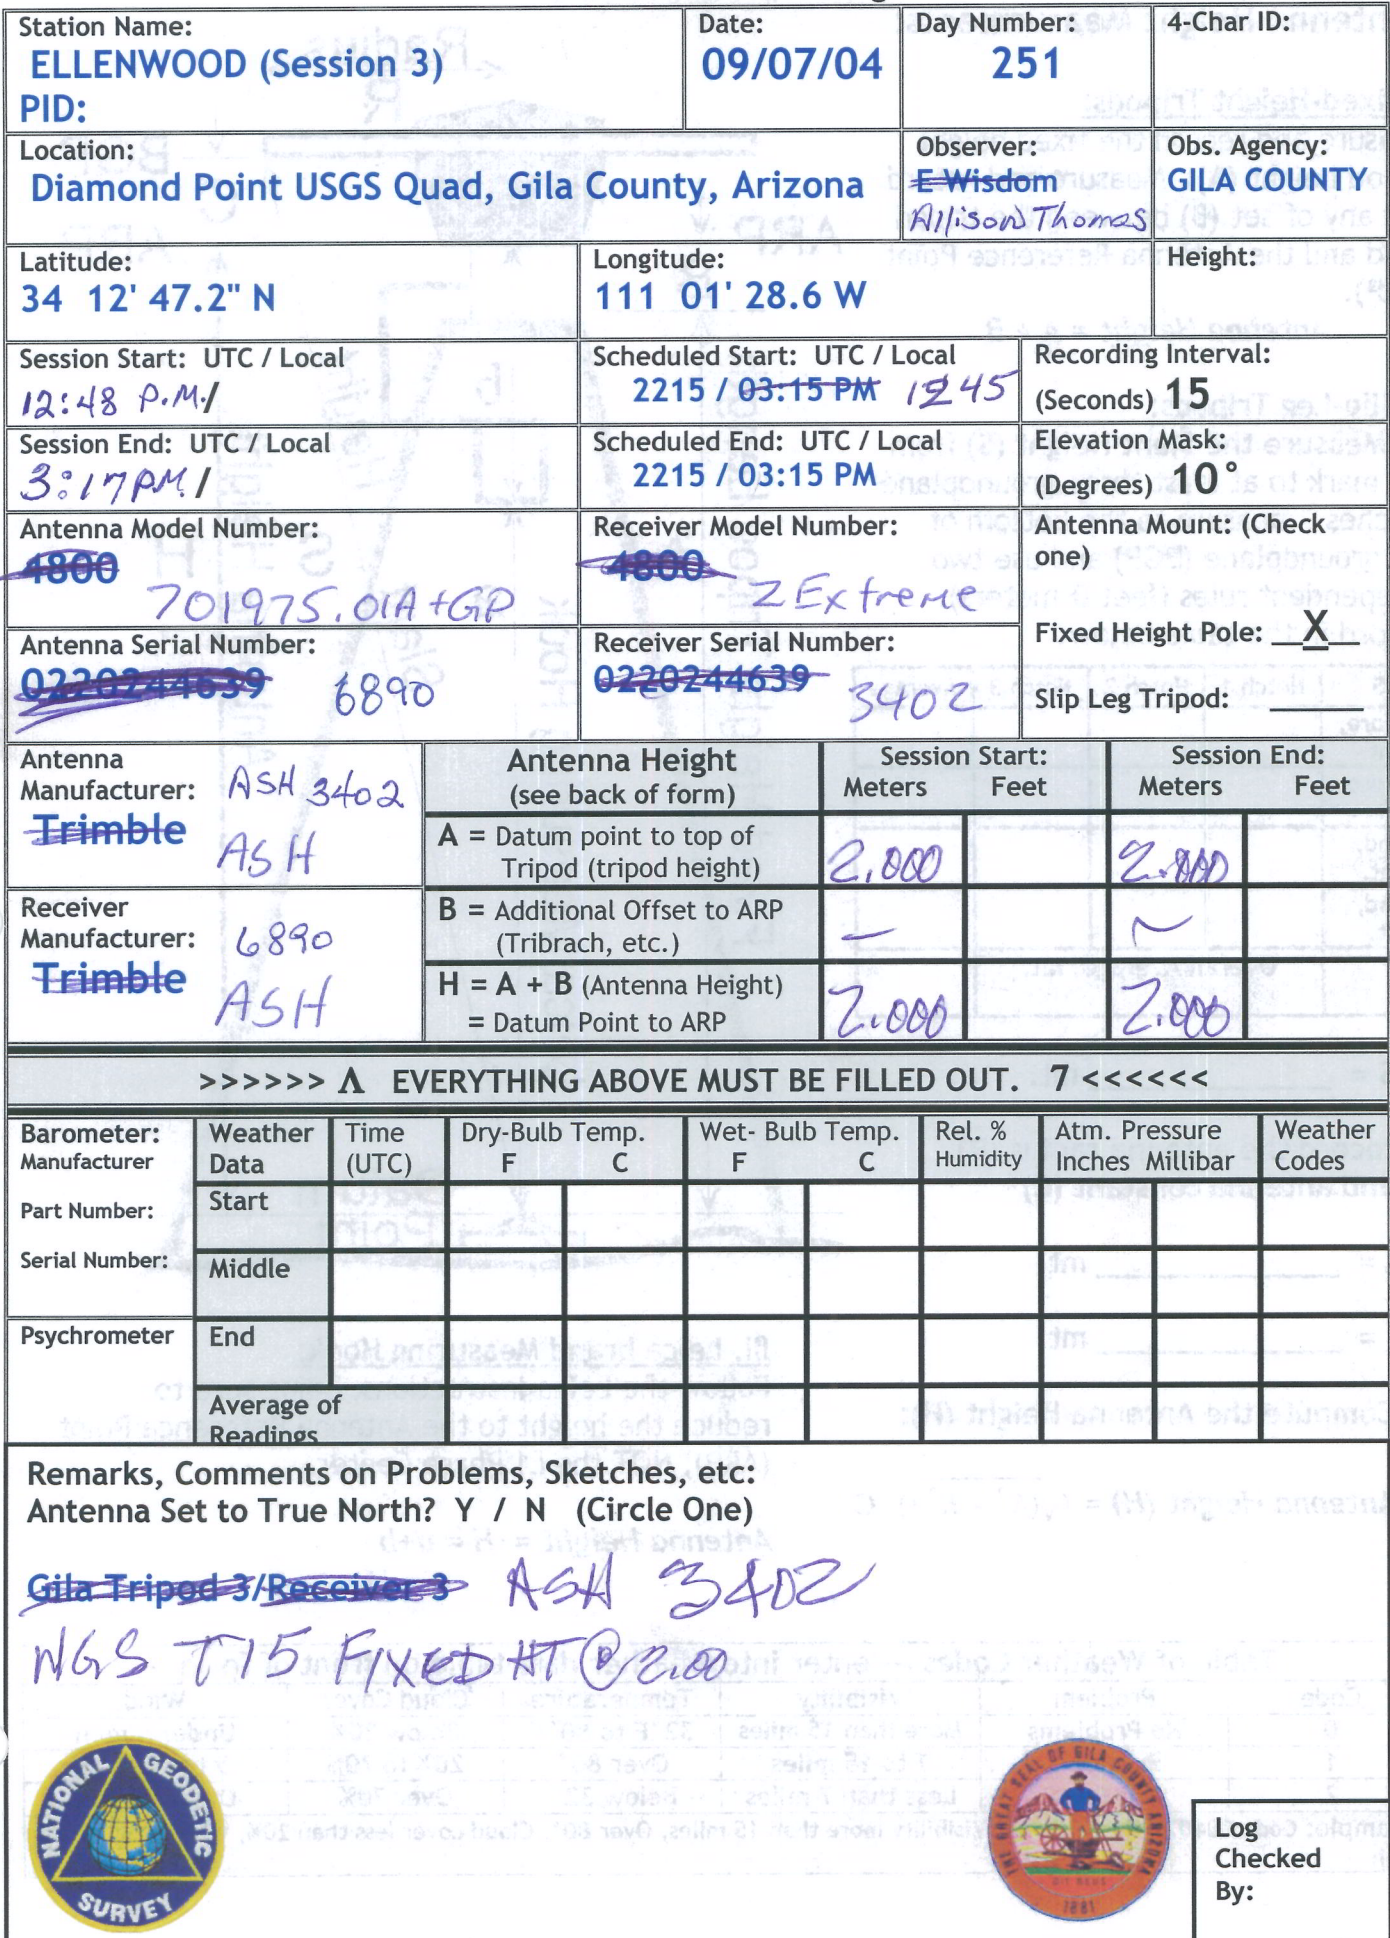 Station Name:
ELLENWOOD (Session 3)
PID:
Date:
09/07/04
Day Number:
251
4-Char ID:
Location:
Diamond Point USGS Quad, Gila County, Arizona
Observer:
E Wisdom
Allison Thomas
Obs. Agency:
GILA COUNTY
Latitude:
34 12' 47.2" N
Longitude:
111 01' 28.6 W
Height:
Session Start: UTC / Local
12:48 P.M./
Scheduled Start: UTC / Local
2215 / 03:15 PM 1245
Recording Interval:
(Seconds) 15
Session End: UTC / Local
3:17PM /
Scheduled End: UTC / Local
2215 / 03:15 PM
Elevation Mask:
(Degrees) 10°
Antenna Model Number:
4800
701975.01A+GP
Receiver Model Number:
4800
Z Extreme
Antenna Mount: (Check
one)
Fixed Height Pole: X
Slip Leg Tripod:
Antenna Serial Number:
0220244639 6890
Receiver Serial Number:
0220244639
3402
Antenna
Manufacturer: ASH 3402
Trimble
ASH
Receiver
Manufacturer: 6890
Trimble
ASH
Antenna Height
(see back of form)
Session Start:
Meters Feet
Session End:
Meters Feet
A = Datum point to top of
Tripod (tripod height)
2.000 2.000
B = Additional Offset to ARP
(Tribrach, etc.)
— ~
H = A + B (Antenna Height)
= Datum Point to ARP
2.000 2.000
>>>>>> Λ EVERYTHING ABOVE MUST BE FILLED OUT. 7 <<<<<<
Barometer:
Manufacturer
Part Number:
Serial Number:
Psychrometer
Weather
Data
Time
(UTC)
Dry-Bulb Temp.
F C
Wet- Bulb Temp.
F C
Rel. %
Humidity
Atm. Pressure
Inches Millibar
Weather
Codes
Start
Middle
End
Average of
Readings
Remarks, Comments on Problems, Sketches, etc:
Antenna Set to True North? Y / N (Circle One)
Gila Tripod 3/Receiver 3 ASH 3402
NGS T15 FIXED HT @ 2.00
NATIONAL GEODETIC SURVEY
THE GREAT SEAL OF GILA COUNTY ARIZONA
1881
Log
Checked
By: